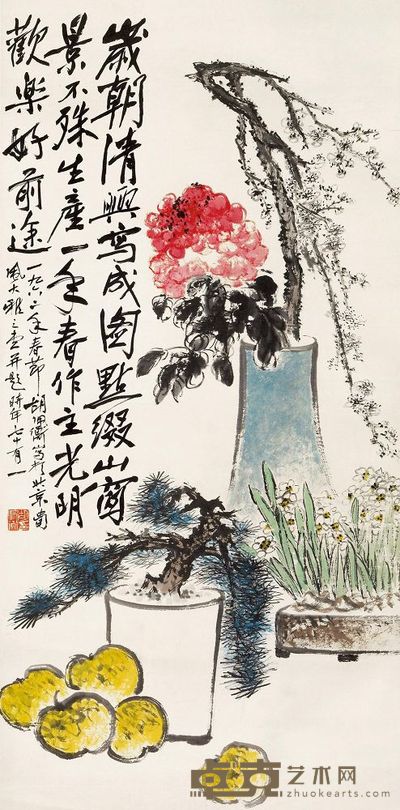 歲朝清興寫成圖點綴山窗
景不殊生產一年春作主光明
歡樂好前途
一九六二年春節胡佩衡寫於北京
風大雅之堂并題時年七十有一
卓克艺术网
zhuokearts.com